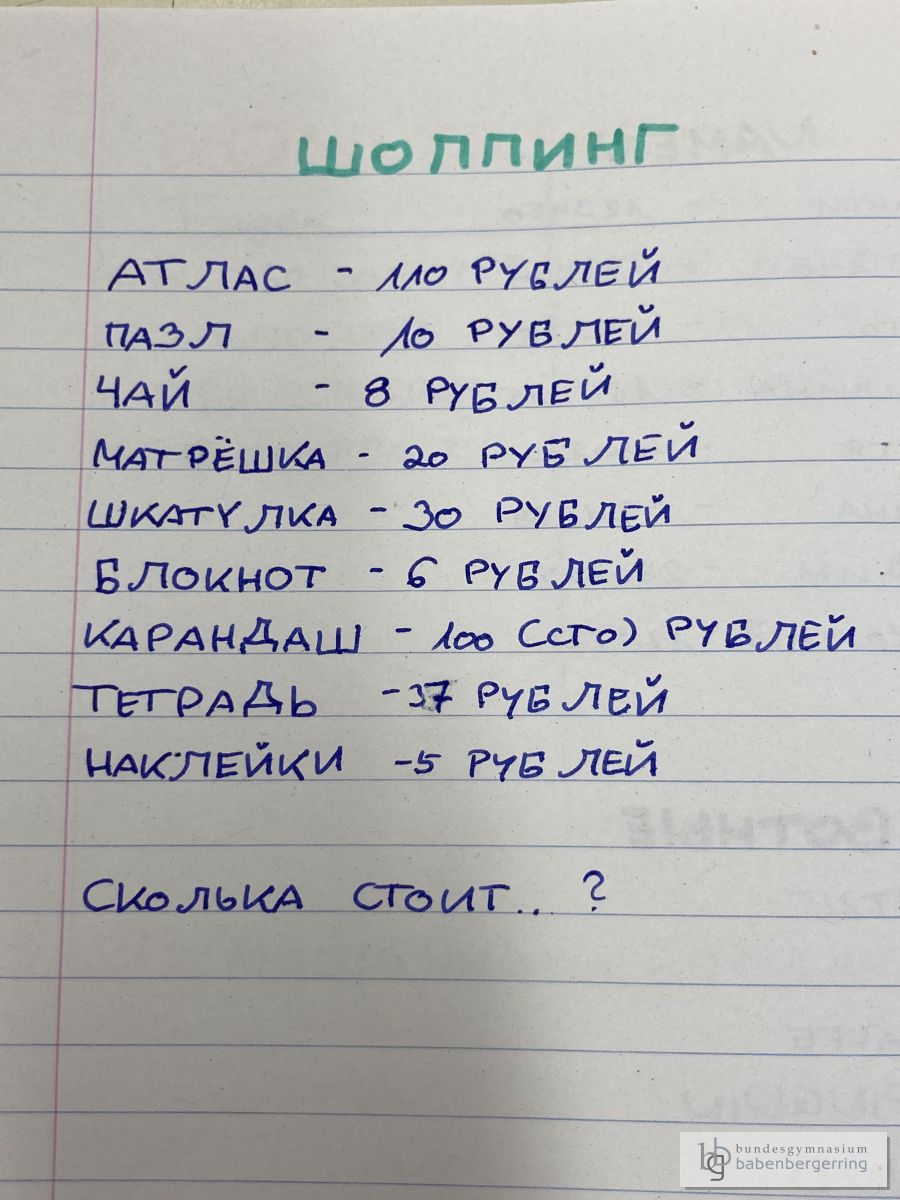 ШОППИНГ
АТЛАС - 110 РУБЛЕЙ
ПАЗЛ - 10 РУБЛЕЙ
ЧАЙ - 8 РУБЛЕЙ
МАТРЁШКА - 20 РУБЛЕЙ
ШКАТУЛКА - 30 РУБЛЕЙ
БЛОКНОТ - 6 РУБЛЕЙ
КАРАНДАШ - 100 (СТО) РУБЛЕЙ
ТЕТРАДЬ - 37 РУБЛЕЙ
НАКЛЕЙКИ - 5 РУБЛЕЙ
СКОЛЬКА СТОИТ... ?
bg bundesgymnasium
babenbergerring